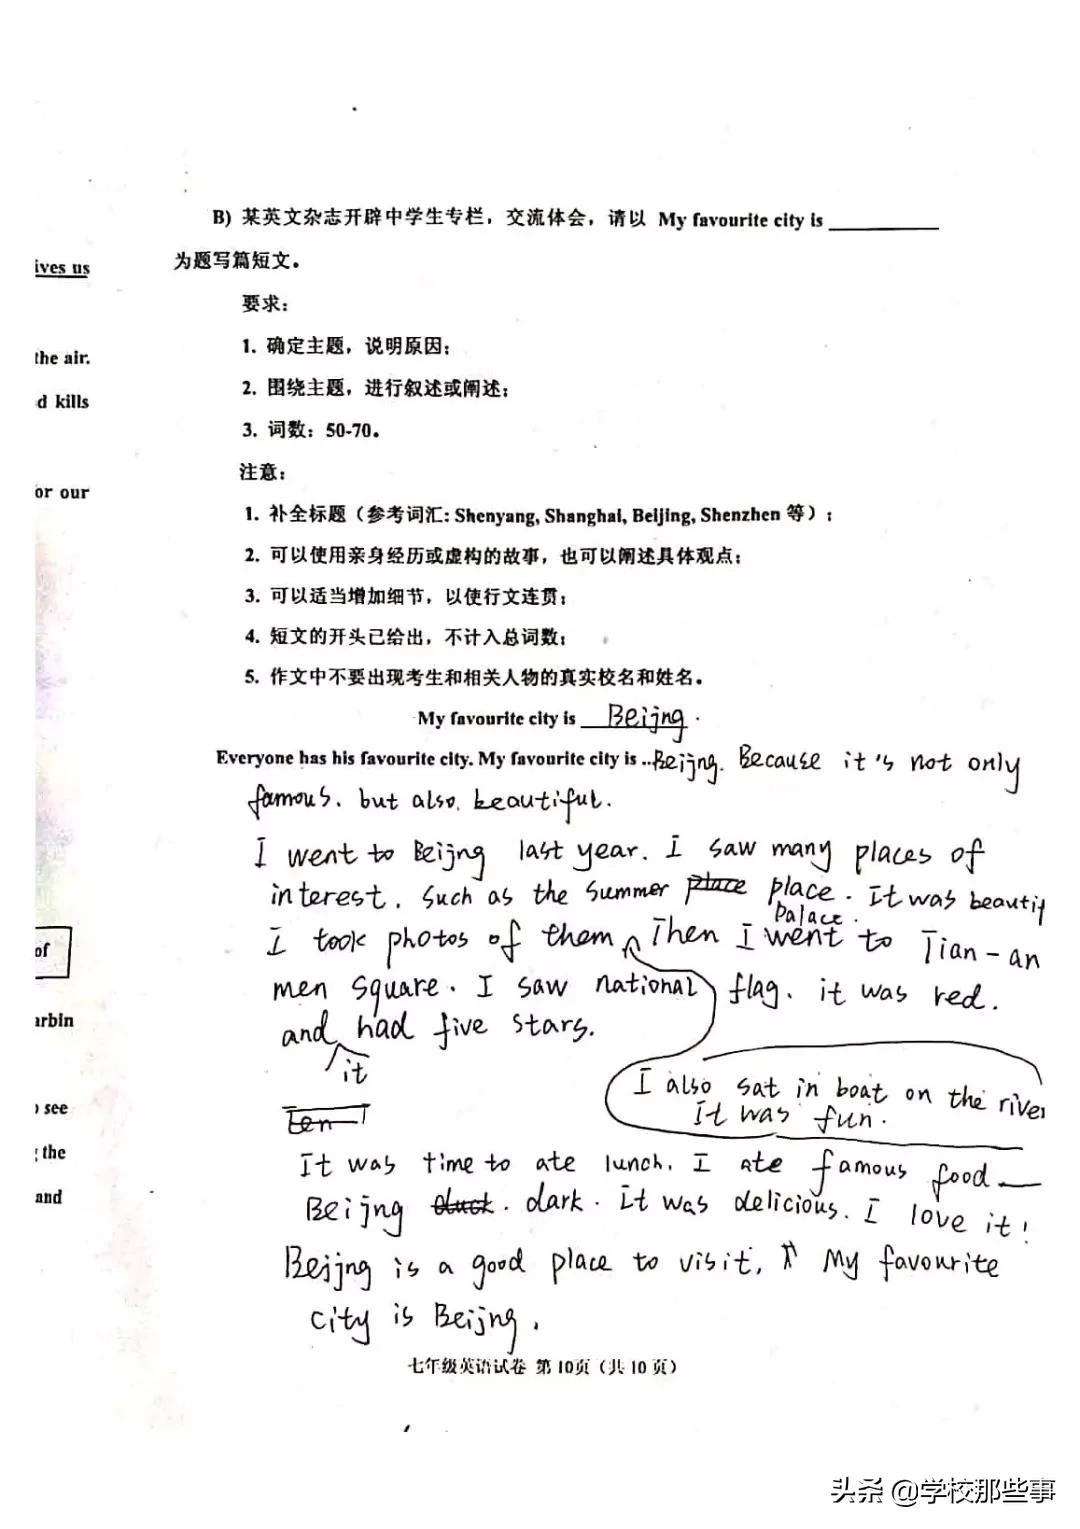 B) 某英文杂志开辟中学生专栏，交流体会，请以 My favourite city is ________
为题写篇短文。
要求：
1. 确定主题，说明原因；
2. 围绕主题，进行叙述或阐述；
3. 词数：50-70。
注意：
1. 补全标题（参考词汇: Shenyang, Shanghai, Beijing, Shenzhen 等）；
2. 可以使用亲身经历或虚构的故事，也可以阐述具体观点；
3. 可以适当增加细节，以使行文连贯；
4. 短文的开头已给出，不计入总词数；
5. 作文中不要出现考生和相关人物的真实校名和姓名。
ives us
the air.
d kills
or our
of
arbin
o see
g the
and
My favourite city is Beijng.
Everyone has his favourite city. My favourite city is ..Beijng. Because it's not only
famous. but also. beautiful.
I went to Beijng last year. I saw many places of
interest. such as the summer place place. It was beautif
palace.
I took photos of them Then I went to Tian-an
men square. I saw national flag. it was red.
and had five stars.
it
I also sat in boat on the river
It was fun.
Ten
It was time to ate lunch. I ate famous food—
Beijng duck. dark. it was delicious. I love it!
Beijng is a good place to visit. My favourite
city is Beijng.
七年级英语试卷 第10页（共10页）
头条 @学校那些事